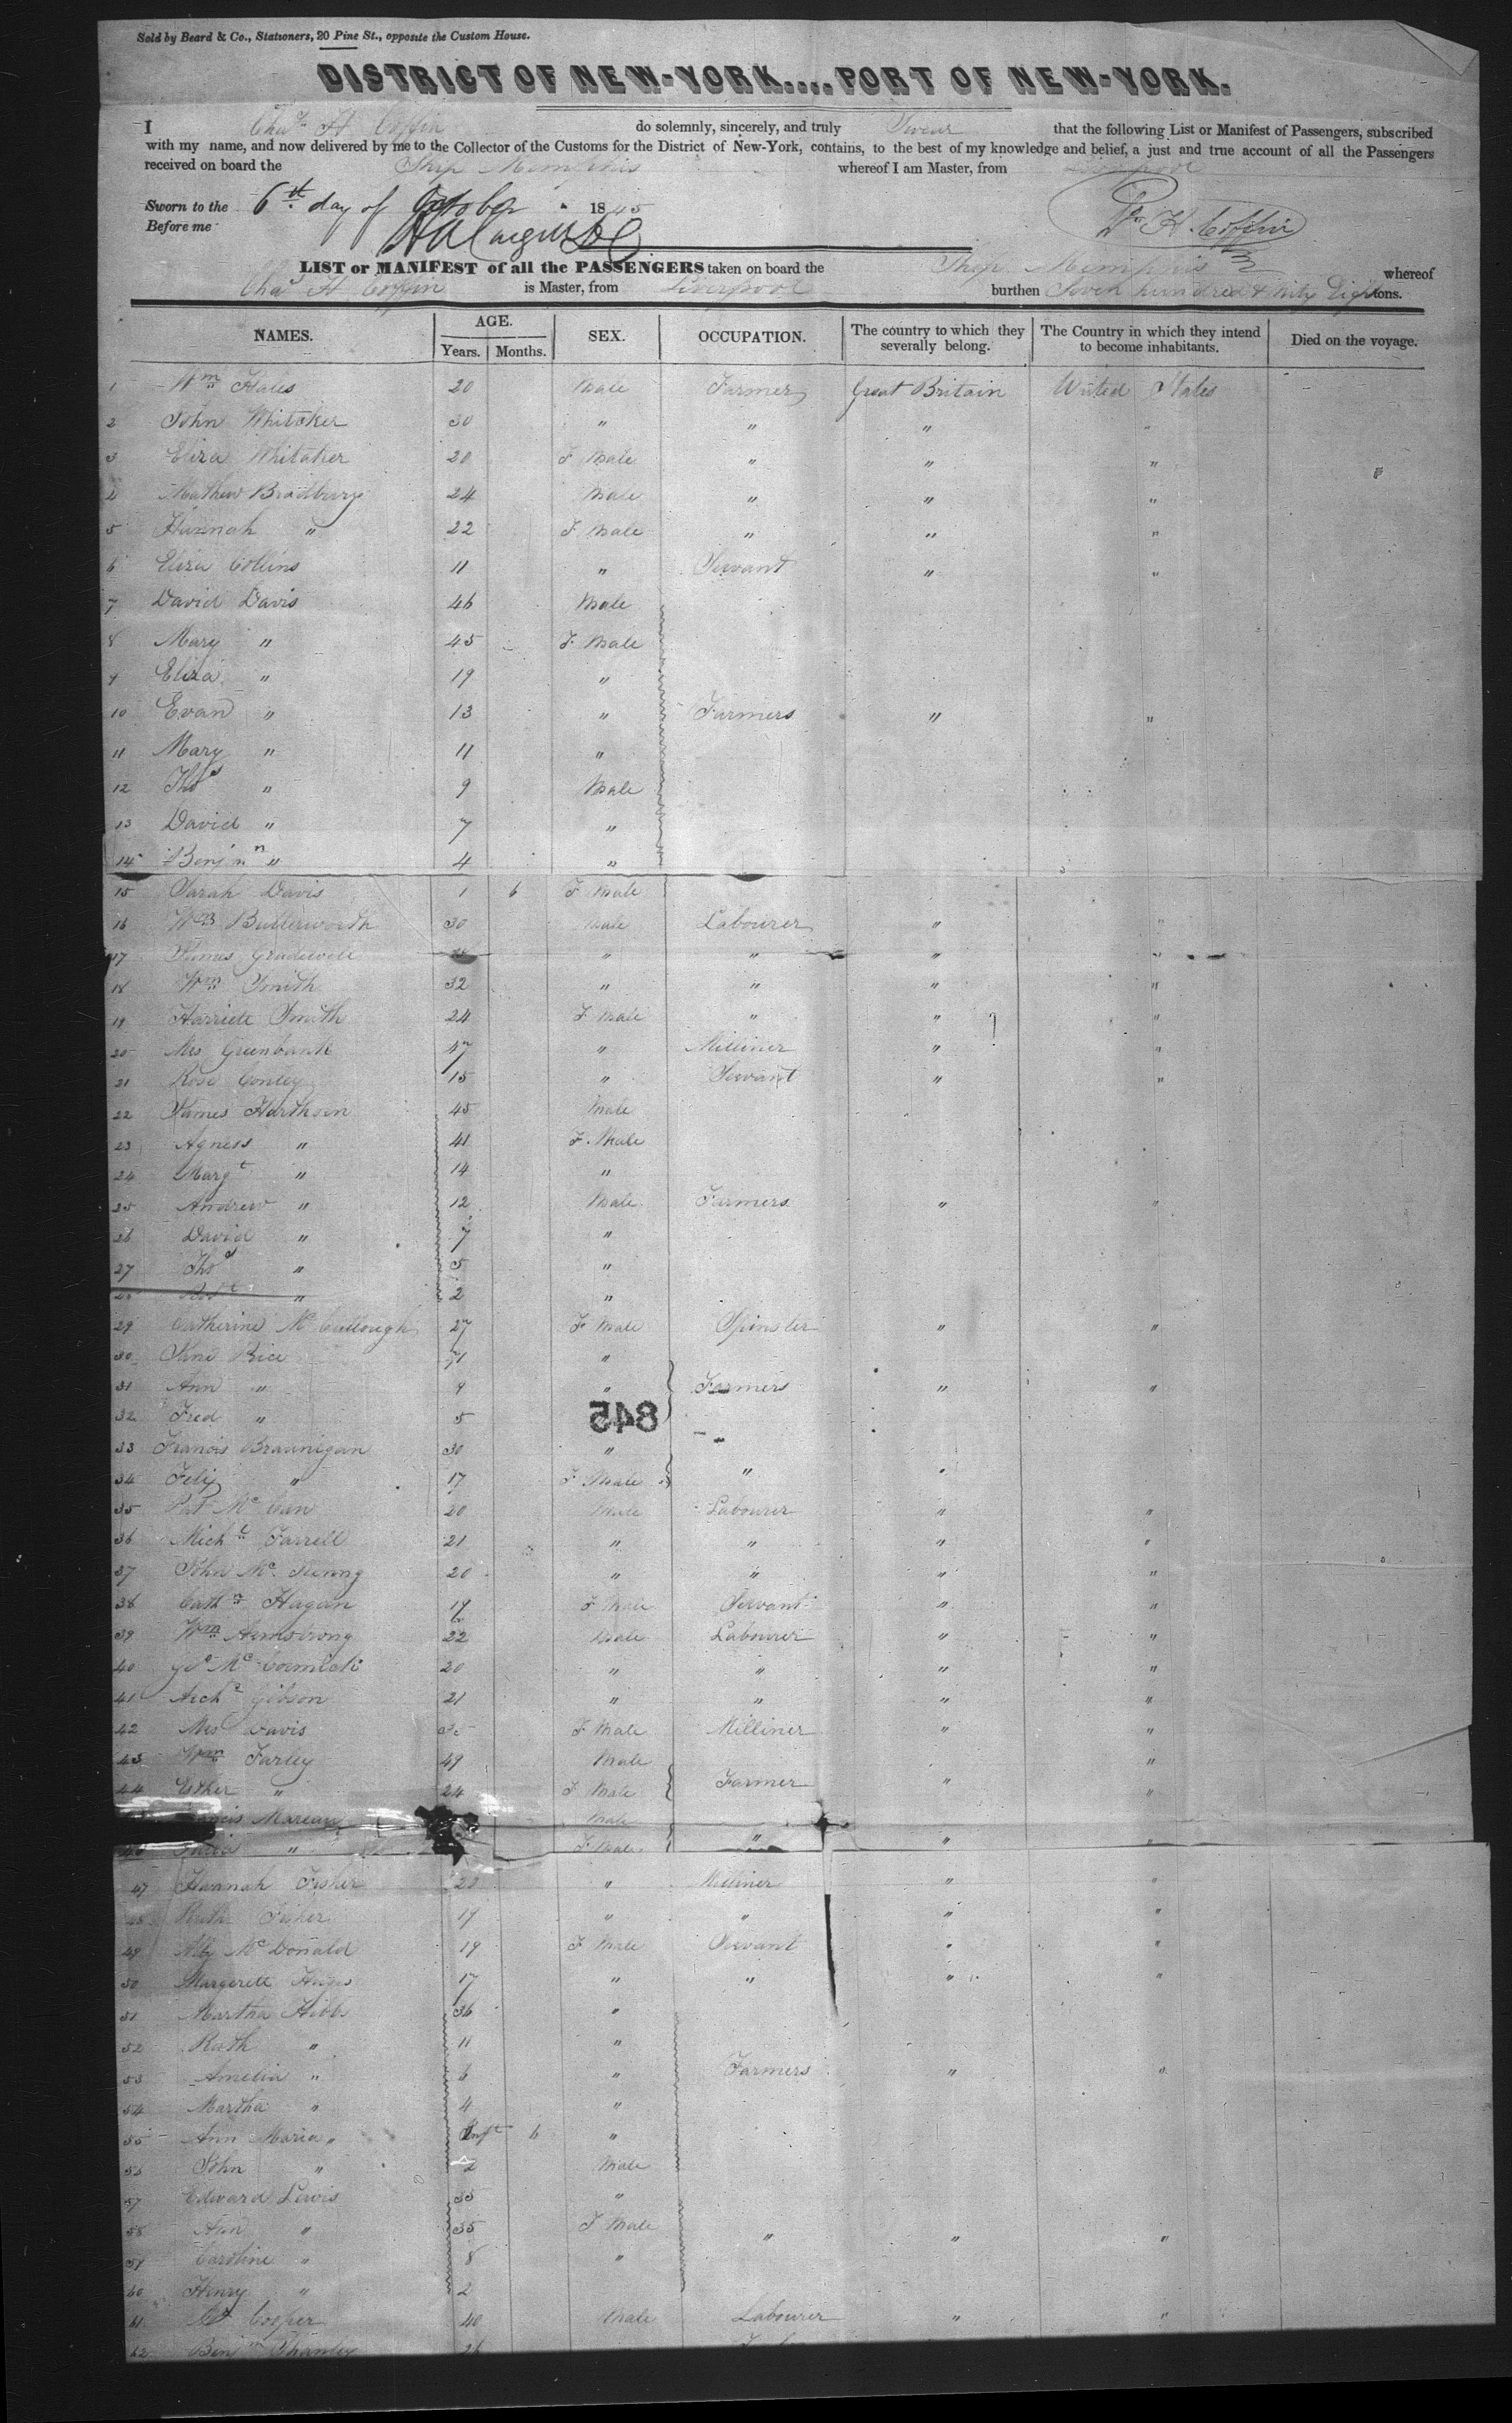 Sold by Beard & Co., Stationers, 20 Pine St., opposite the Custom House.
DISTRICT OF NEW-YORK....PORT OF NEW-YORK.
I Chas H Coffin do solemnly, sincerely, and truly Swear that the following List or Manifest of Passengers, subscribed
with my name, and now delivered by me to the Collector of the Customs for the District of New-York, contains, to the best of my knowledge and belief, a just and true account of all the Passengers
received on board the Ship Memphis whereof I am Master, from Liverpool
Sworn to the 6th day of October 1845
Before me H Coffin
LIST or MANIFEST of all the PASSENGERS taken on board the Ship Memphis whereof
Chas H Coffin is Master, from Liverpool burthen Seven hundred & Ninty Eight tons.
NAMES. AGE. Years. Months. SEX. OCCUPATION. The country to which they severally belong. The Country in which they intend to become inhabitants. Died on the voyage.
1 Wm Hales 20 Male Farmer Great Britain United States
2 John Whitaker 30 " " " "
3 Eliza Whitaker 20 F Male " " "
4 Mathew Bradbury 24 Male " " "
5 Hannah " 22 F Male " " "
6 Eliza Collins 11 " Servant " "
7 David Davis 46 Male
8 Mary " 45 F Male
9 Eliza " 19 "
10 Evan " 13 " Farmers " "
11 Mary " 11 "
12 Thos " 9 Male
13 David " 7 "
14 Benjmn " 4 "
15 Sarah Davis 1 6 F Male
16 Wm Butterworth 30 Male Labourer " "
17 James Gradwell " " " "
18 Wm Smith 32 " " " "
19 Harriett Smith 24 F Male " " "
20 Mrs Greenbank 47 " Milliner " "
21 Rose Conley 15 " Servant " "
22 James Harthorn 45 Male
23 Agness " 41 F Male
24 Margt " 14 "
25 Andrew " 12 Male Farmers " "
26 David " 7 "
27 Thos " 5 "
28 Robt " 2 "
29 Catherine McCullough 27 F Male Spinster " "
30 Jane Rice 71 "
31 Ann " 9 " Farmers " "
32 Fred " 5
845
33 Francis Brannigan 30 "
34 Felix " 17 F Male " "
35 Pat McCan 20 Male Labourer " "
36 Michl Farrell 21 " " " "
37 John Mc 20 " " " "
38 Cathn Hagan 19 F Male Servant " "
39 Wm Armstrong 22 Male Labourer " "
40 Geo McCormick 20 " " " "
41 Archd Gibson 21 " " " "
42 Mrs Davis F Male Milliner " "
43 Wm Farley 49 Male "
44 Esther " 24 F Male Farmer " "
Francis Male
46 " F Male " " "
47 Hannah Fisher " Milliner " "
48 Ruth Fisher 19 " " " "
49 McDonald 19 F Male Servant " "
50 Margerett 17 " " " "
51 Martha Hibb 36 "
52 Ruth " 11 "
53 Amelia " 6 " Farmers " "
54 Martha " 4 "
55 Ann Maria " Inft 6 "
56 John " 2 Male
57 Edward Lewis 35 "
58 Ann " 35 F Male " " "
59 Caroline " 8 "
60 Henry " 2
61 Cooper 40 Male Labourer " "
62 Benjn 26